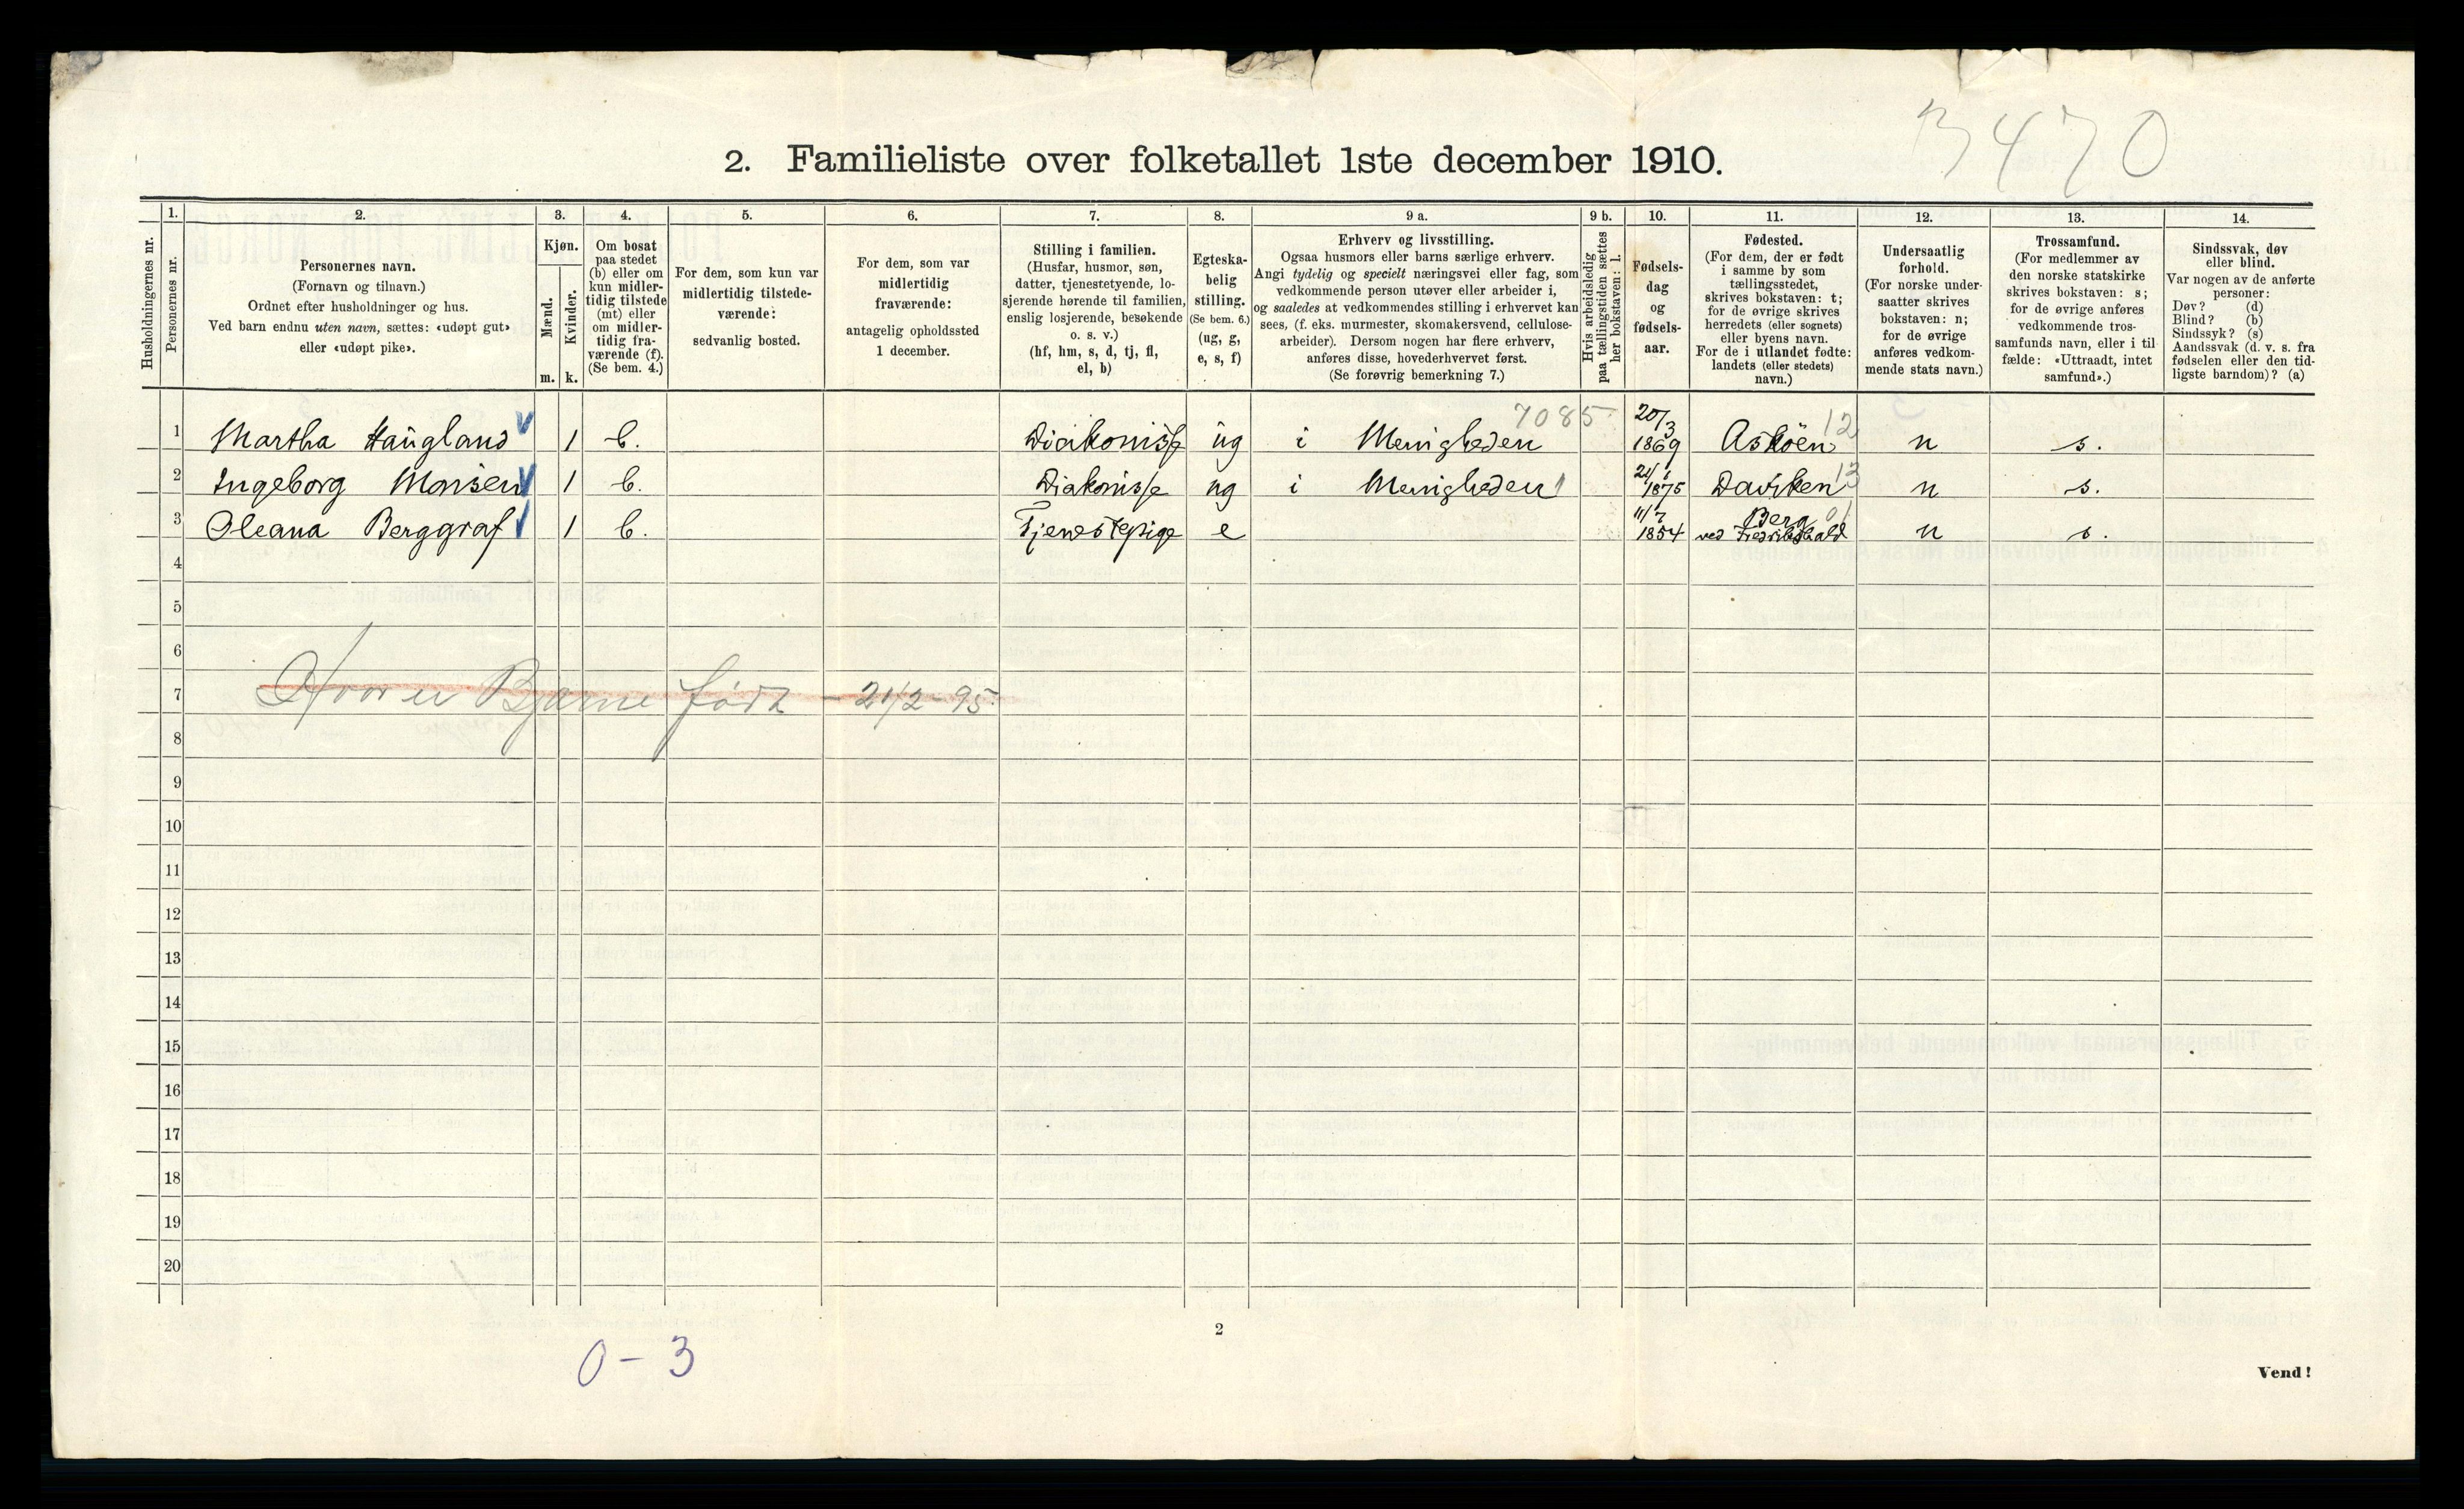 3470
2. Familieliste over folketallet 1ste december 1910.
1. 2. 3. 4. 5. 6. 7. 8. 9 a. 9 b. 10. 11. 12. 13. 14.
Husholdningernes nr.
Personernes nr.
Personernes navn.
(Fornavn og tilnavn.)
Ordnet efter husholdninger og hus.
Ved barn endnu uten navn, sættes: «udøpt gut»
eller «udøpt pike».
Kjøn.
Mænd.
m.
Kvinder.
k.
Om bosat
paa stedet
(b) eller om
kun midler-
tidig tilstede
(mt) eller
om midler-
tidig fra-
værende (f).
(Se bem. 4.)
For dem, som kun var
midlertidig tilstede-
værende:
sedvanlig bosted.
For dem, som var
midlertidig
fraværende:
antagelig opholdssted
1 december.
Stilling i familien.
(Husfar, husmor, søn,
datter, tjenestetyende, lo-
sjerende hørende til familien,
enslig losjerende, besøkende
o. s. v.)
(hf, hm, s, d, tj, fl,
el, b)
Egteska-
belig
stilling.
(Se bem. 6.)
(ug, g,
e, s, f)
Erhverv og livsstilling.
Ogsaa husmors eller barns særlige erhverv.
Angi tydelig og specielt næringsvei eller fag, som
vedkommende person utøver eller arbeider i,
og saaledes at vedkommendes stilling i erhvervet kan
sees, (f. eks. murmester, skomakersvend, cellulose-
arbeider). Dersom nogen har flere erhverv,
anføres disse, hovederhvervet først.
(Se forøvrig bemerkning 7.)
Hvis arbeidsledig
paa tællingstiden sættes
her bokstaven: l.
Fødsels-
dag
og
fødsels-
aar.
Fødested.
(For dem, der er født
i samme by som
tællingsstedet,
skrives bokstaven: t;
for de øvrige skrives
herredets (eller sognets)
eller byens navn.
For de i utlandet fødte:
landets (eller stedets)
navn.)
Undersaatlig
forhold.
(For norske under-
saatter skrives
bokstaven: n;
for de øvrige
anføres vedkom-
mende stats navn.)
Trossamfund.
(For medlemmer av
den norske statskirke
skrives bokstaven: s;
for de øvrige anføres
vedkommende tros-
samfunds navn, eller i til-
fælde: «Uttraadt, intet
samfund».)
Sindssvak, døv
eller blind.
Var nogen av de anførte
personer:
Døv? (d)
Blind? (b)
Sindssyk? (s)
Aandssvak (d. v. s. fra
fødselen eller den tid-
ligste barndom)? (a)
1 Martha Haugland 1 b. Diakonisse ug i Menigheden 7085 20/3 1869 Askøen 12 n s.
2 Ingeborg Monsen 1 b. Diakonisse ug i Menigheden 1875 Daviken 13 n s.
3 Oleana Berggraf 1 b. Tjenestepige e 11/7 1854 Berg 01 ved Fredrikshald n s.
4
5
6
7 Hvor er Bjarne født - 21/2-95
8
9
10
11
12
13
14
15
16
17
18
19
20
0-3
2
Vend!